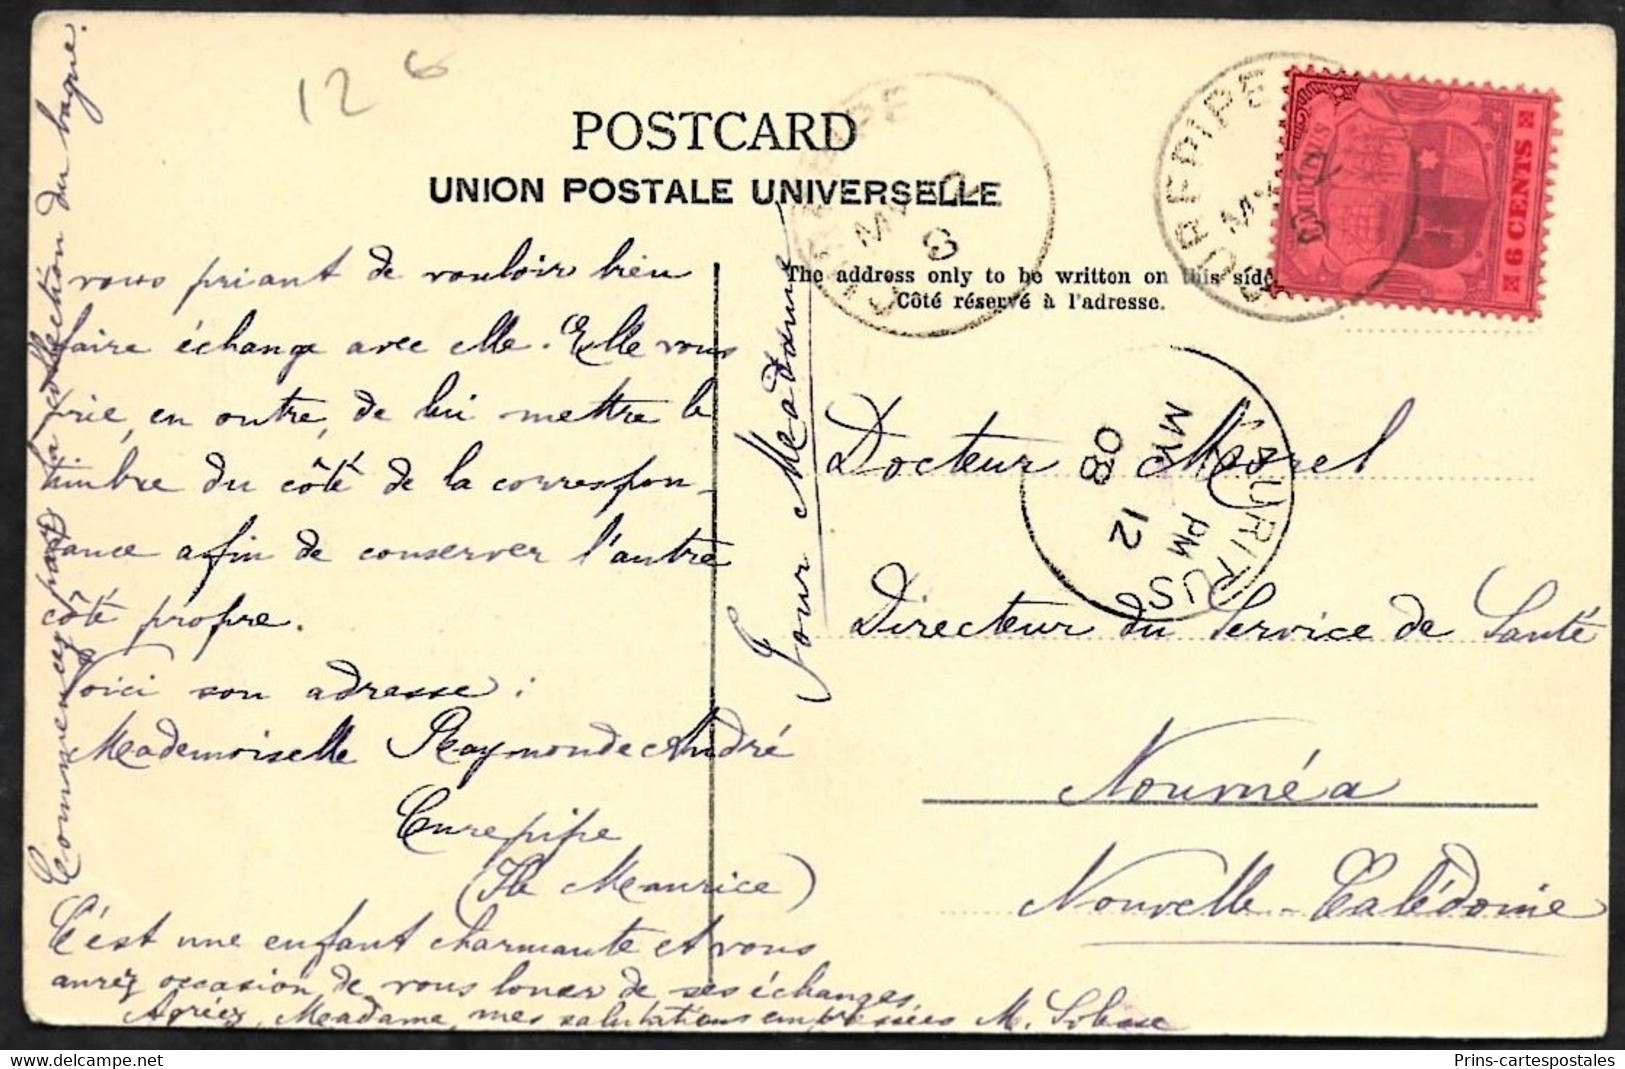 12 6
POSTCARD
UNION POSTALE UNIVERSELLE
The address only to be written on this side
Côté réservé à l'adresse.
CUREPIPE
MY 12
8
CUREPIPE
MY 12
8
MAURITIUS
6 CENTS
MAURITIUS
PM
12
MY
08
vous priant de vouloir bien
faire échange avec elle. Elle vous
prie, en outre, de lui mettre le
timbre du côté de la correspon-
dance afin de conserver l'autre
côté propre.
Voici son adresse :
Mademoiselle Raymonde André
Curepipe
(Ile Maurice)
C'est une enfant charmante et vous
aurez occasion de vous louer de ses échanges.
Agréez, Madame, mes salutations empressées M.
Commencez par la collection du bagne.
Pour Madame
Docteur Morel
Directeur du Service de Santé
Nouméa
Nouvelle-Calédonie
Prins-cartespostales